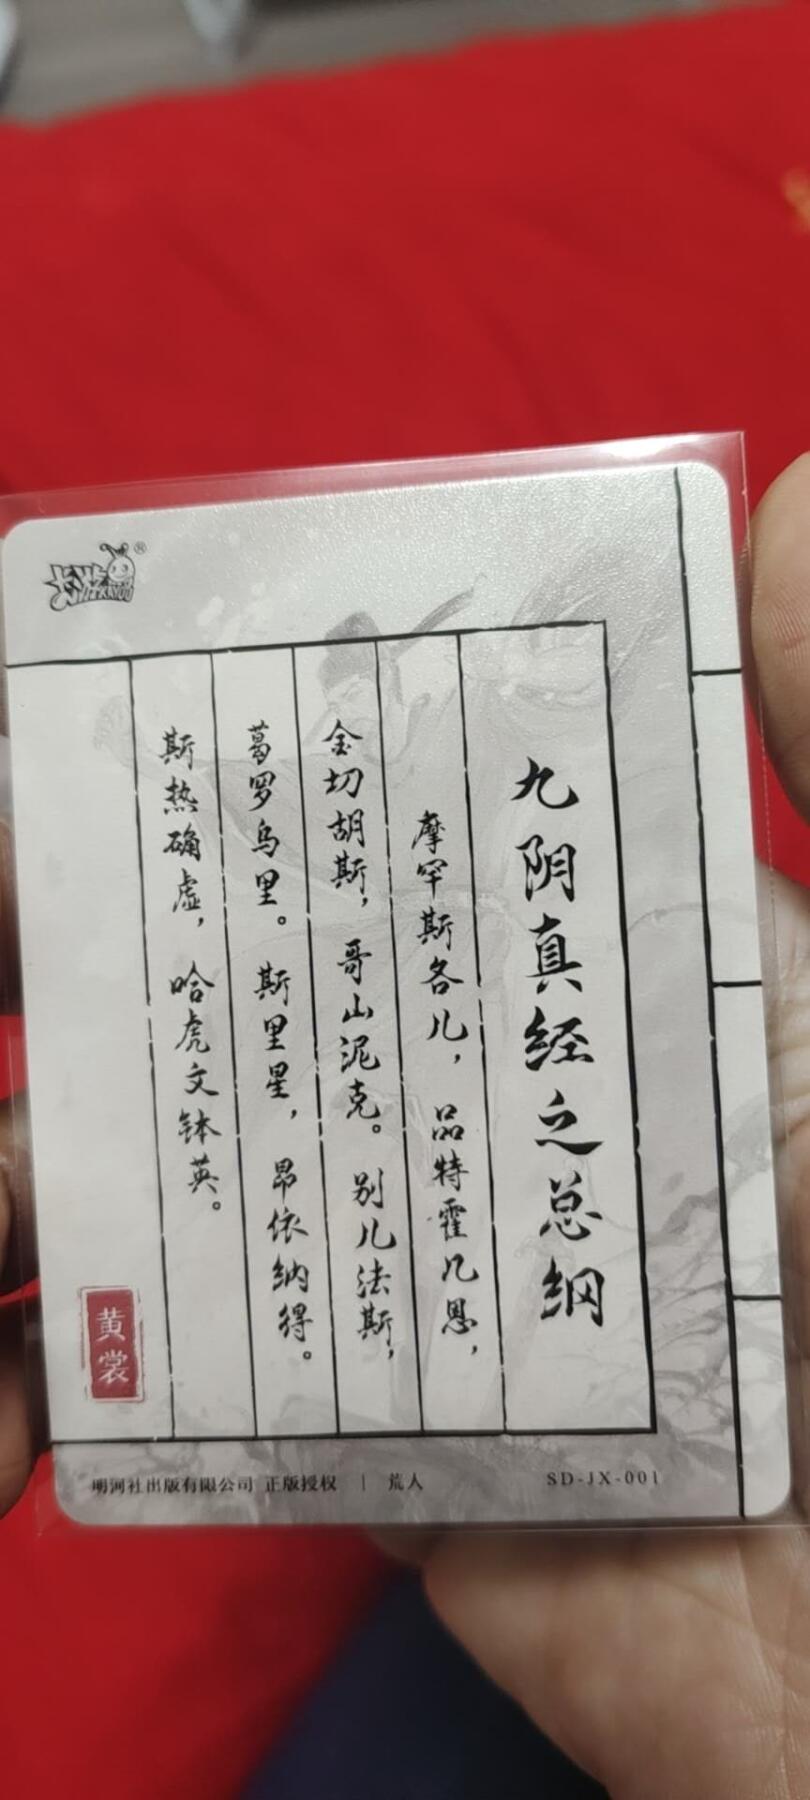 卡游 KAYOU ®
九阴真经之总纲
摩罕斯各儿，品特霍几恩，
金切胡斯，哥山泥克。别儿法斯，
葛罗乌里。斯里星，昂依纳得。
斯热确虚，哈虎文钵英。
黄裳
明河社出版有限公司 正版授权 | 荒人
SD-JX-001